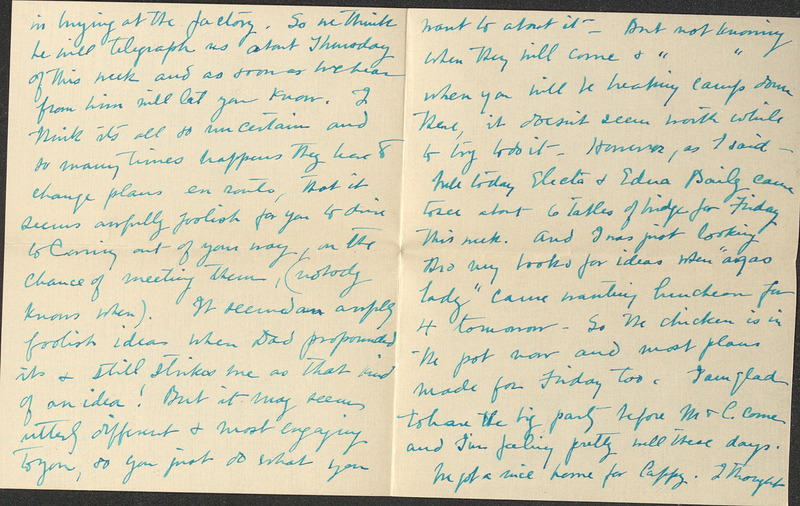 in buying at the factory. So we think
he will telegraph us about Thursday
of this week and as soon as we hear
from him will let you know. I
think its all so uncertain and
so many times happens they have to
change plans en route, that it
seems awfully foolish for you to drive
to Corning out of your way, on the
chance of meeting them, (nobody
knows when). It seemed an awfully
foolish idea when Dad propounded
it & still strikes me as that kind
of an idea! But it may seem
utterly different & most engaging
to you, so you just do what you
want to about it – But not knowing
when they will come & " "
when you will be breaking camp down
there, it doesn't seem worth while
to try to do it – However, as I said –
today Electa & Edna Baily came
to see about 6 tables of bridge for Friday
this week. And I was just looking
thro my books for ideas when "
lady" came wanting luncheon for
4 tomorrow – So the chicken is in
the pot now and most plans
made for Friday too. I am glad
to have the big party before M & C. come
and I'm feeling pretty well these days.
got a nice home for Cappy. I thought